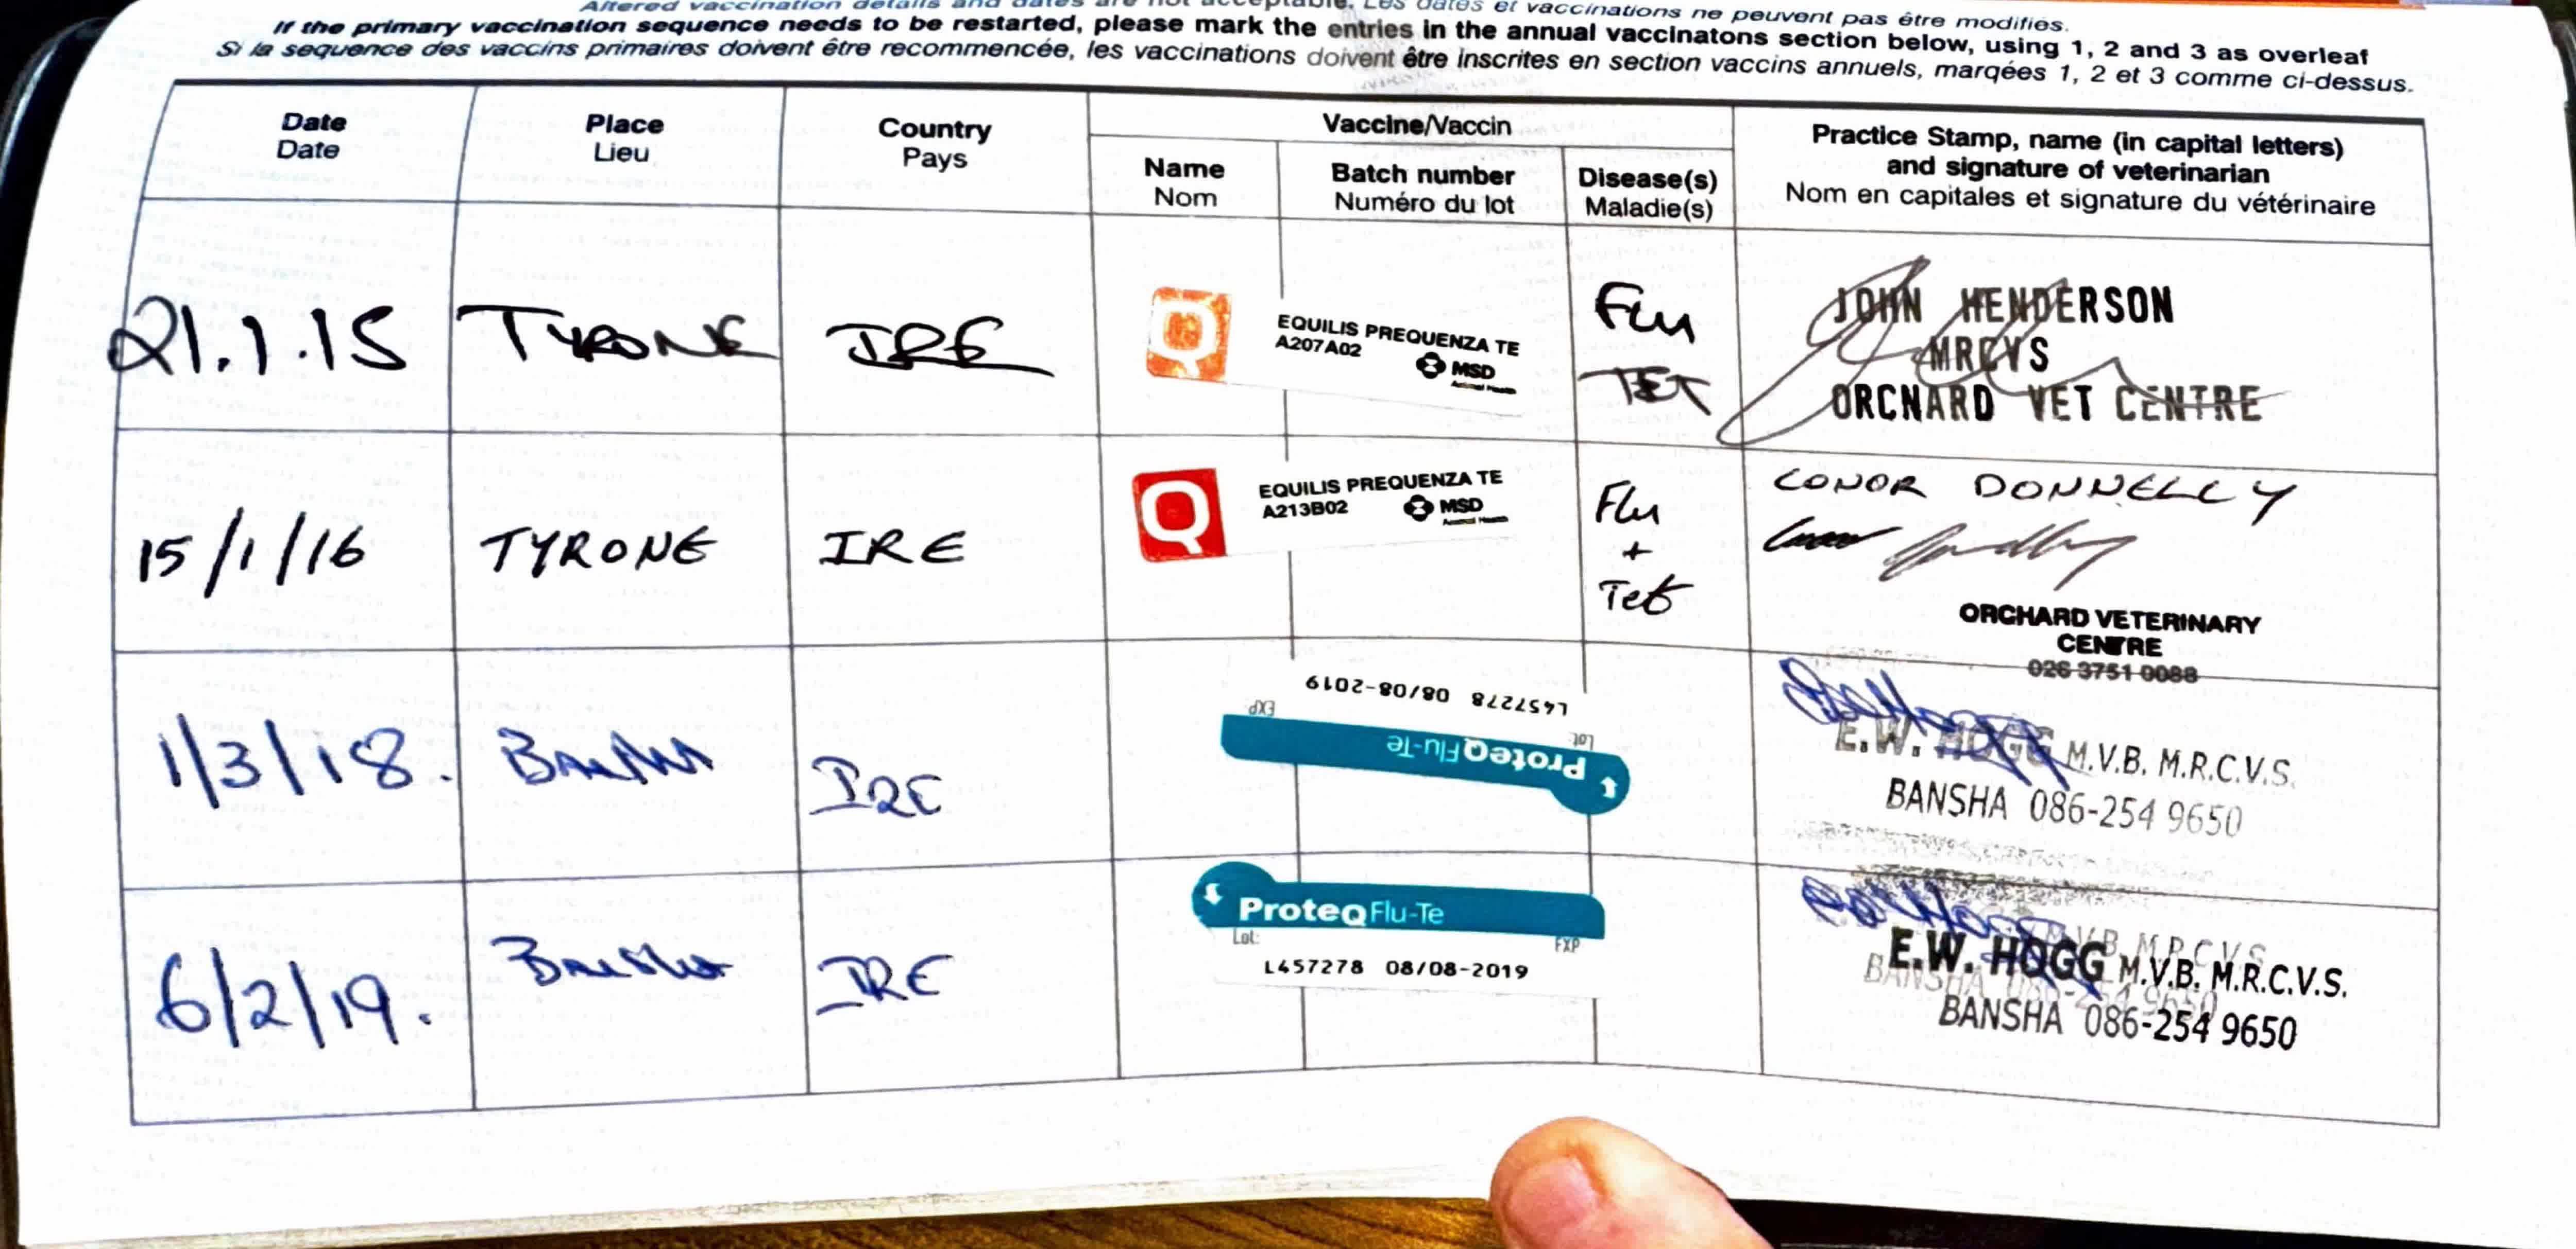 Altered vaccination details and dates are not acceptable. Les dates et vaccinations ne peuvent pas être modifiés.
If the primary vaccination sequence needs to be restarted, please mark the entries in the annual vaccinatons section below, using 1, 2 and 3 as overleaf
Si la sequence des vaccins primaires doivent être recommencée, les vaccinations doivent être inscrites en section vaccins annuels, marqées 1, 2 et 3 comme ci-dessus.
Date
Date
Place
Lieu
Country
Pays
Vaccine/Vaccin
Name
Nom
Batch number
Numéro du lot
Disease(s)
Maladie(s)
Practice Stamp, name (in capital letters)
and signature of veterinarian
Nom en capitales et signature du vétérinaire
21.1.15
TYRONE
IRE
Q
EQUILIS PREQUENZA TE
A207A02
MSD
Animal Health
Flu
TET
JOHN HENDERSON
MRCVS
ORCNARD VET CENTRE
15/1/16
TYRONE
IRE
Q
EQUILIS PREQUENZA TE
A213B02
MSD
Animal Health
Flu
+
Tet
CONOR DONNELLY
ORCHARD VETERINARY
CENTRE
028 3751 0088
1/3/18.
Bansha
IRE
ProteqFlu-Te
Lot:
EXP
L457278 08/08-2019
E.W. HOGG M.V.B. M.R.C.V.S.
BANSHA 086-254 9650
6/2/19.
Bansha
IRE
ProteqFlu-Te
Lot:
EXP
L457278 08/08-2019
M.V.B. M.R.C.V.S.
BANSHA 086-254 9650
E.W. HOGG M.V.B. M.R.C.V.S.
BANSHA 086-254 9650